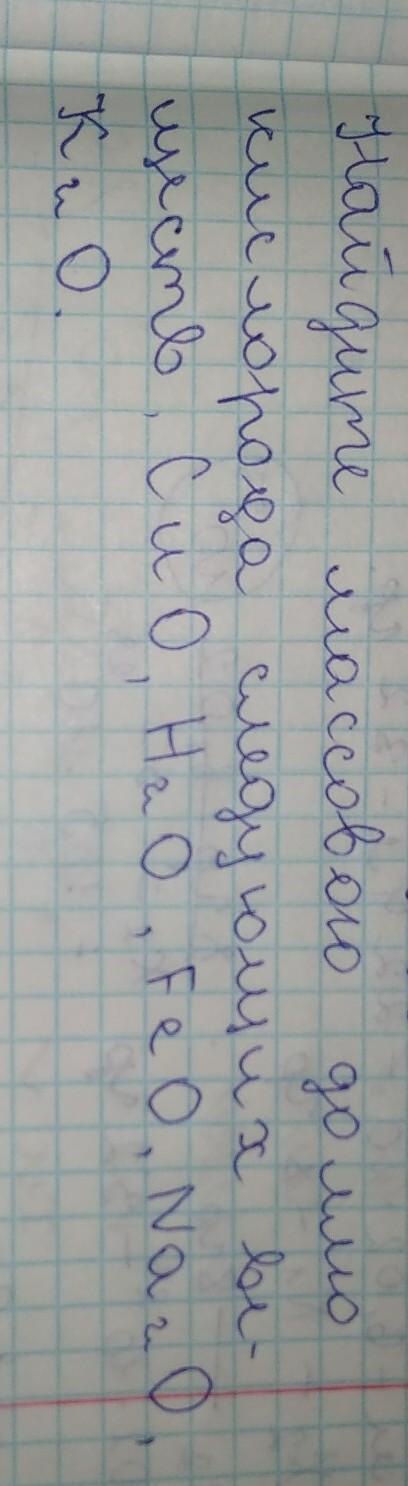 Найдите массовою доллю
кислорода следующих ве-
ществ, CuO, H₂O, FeO, Na₂O,
K₂O.